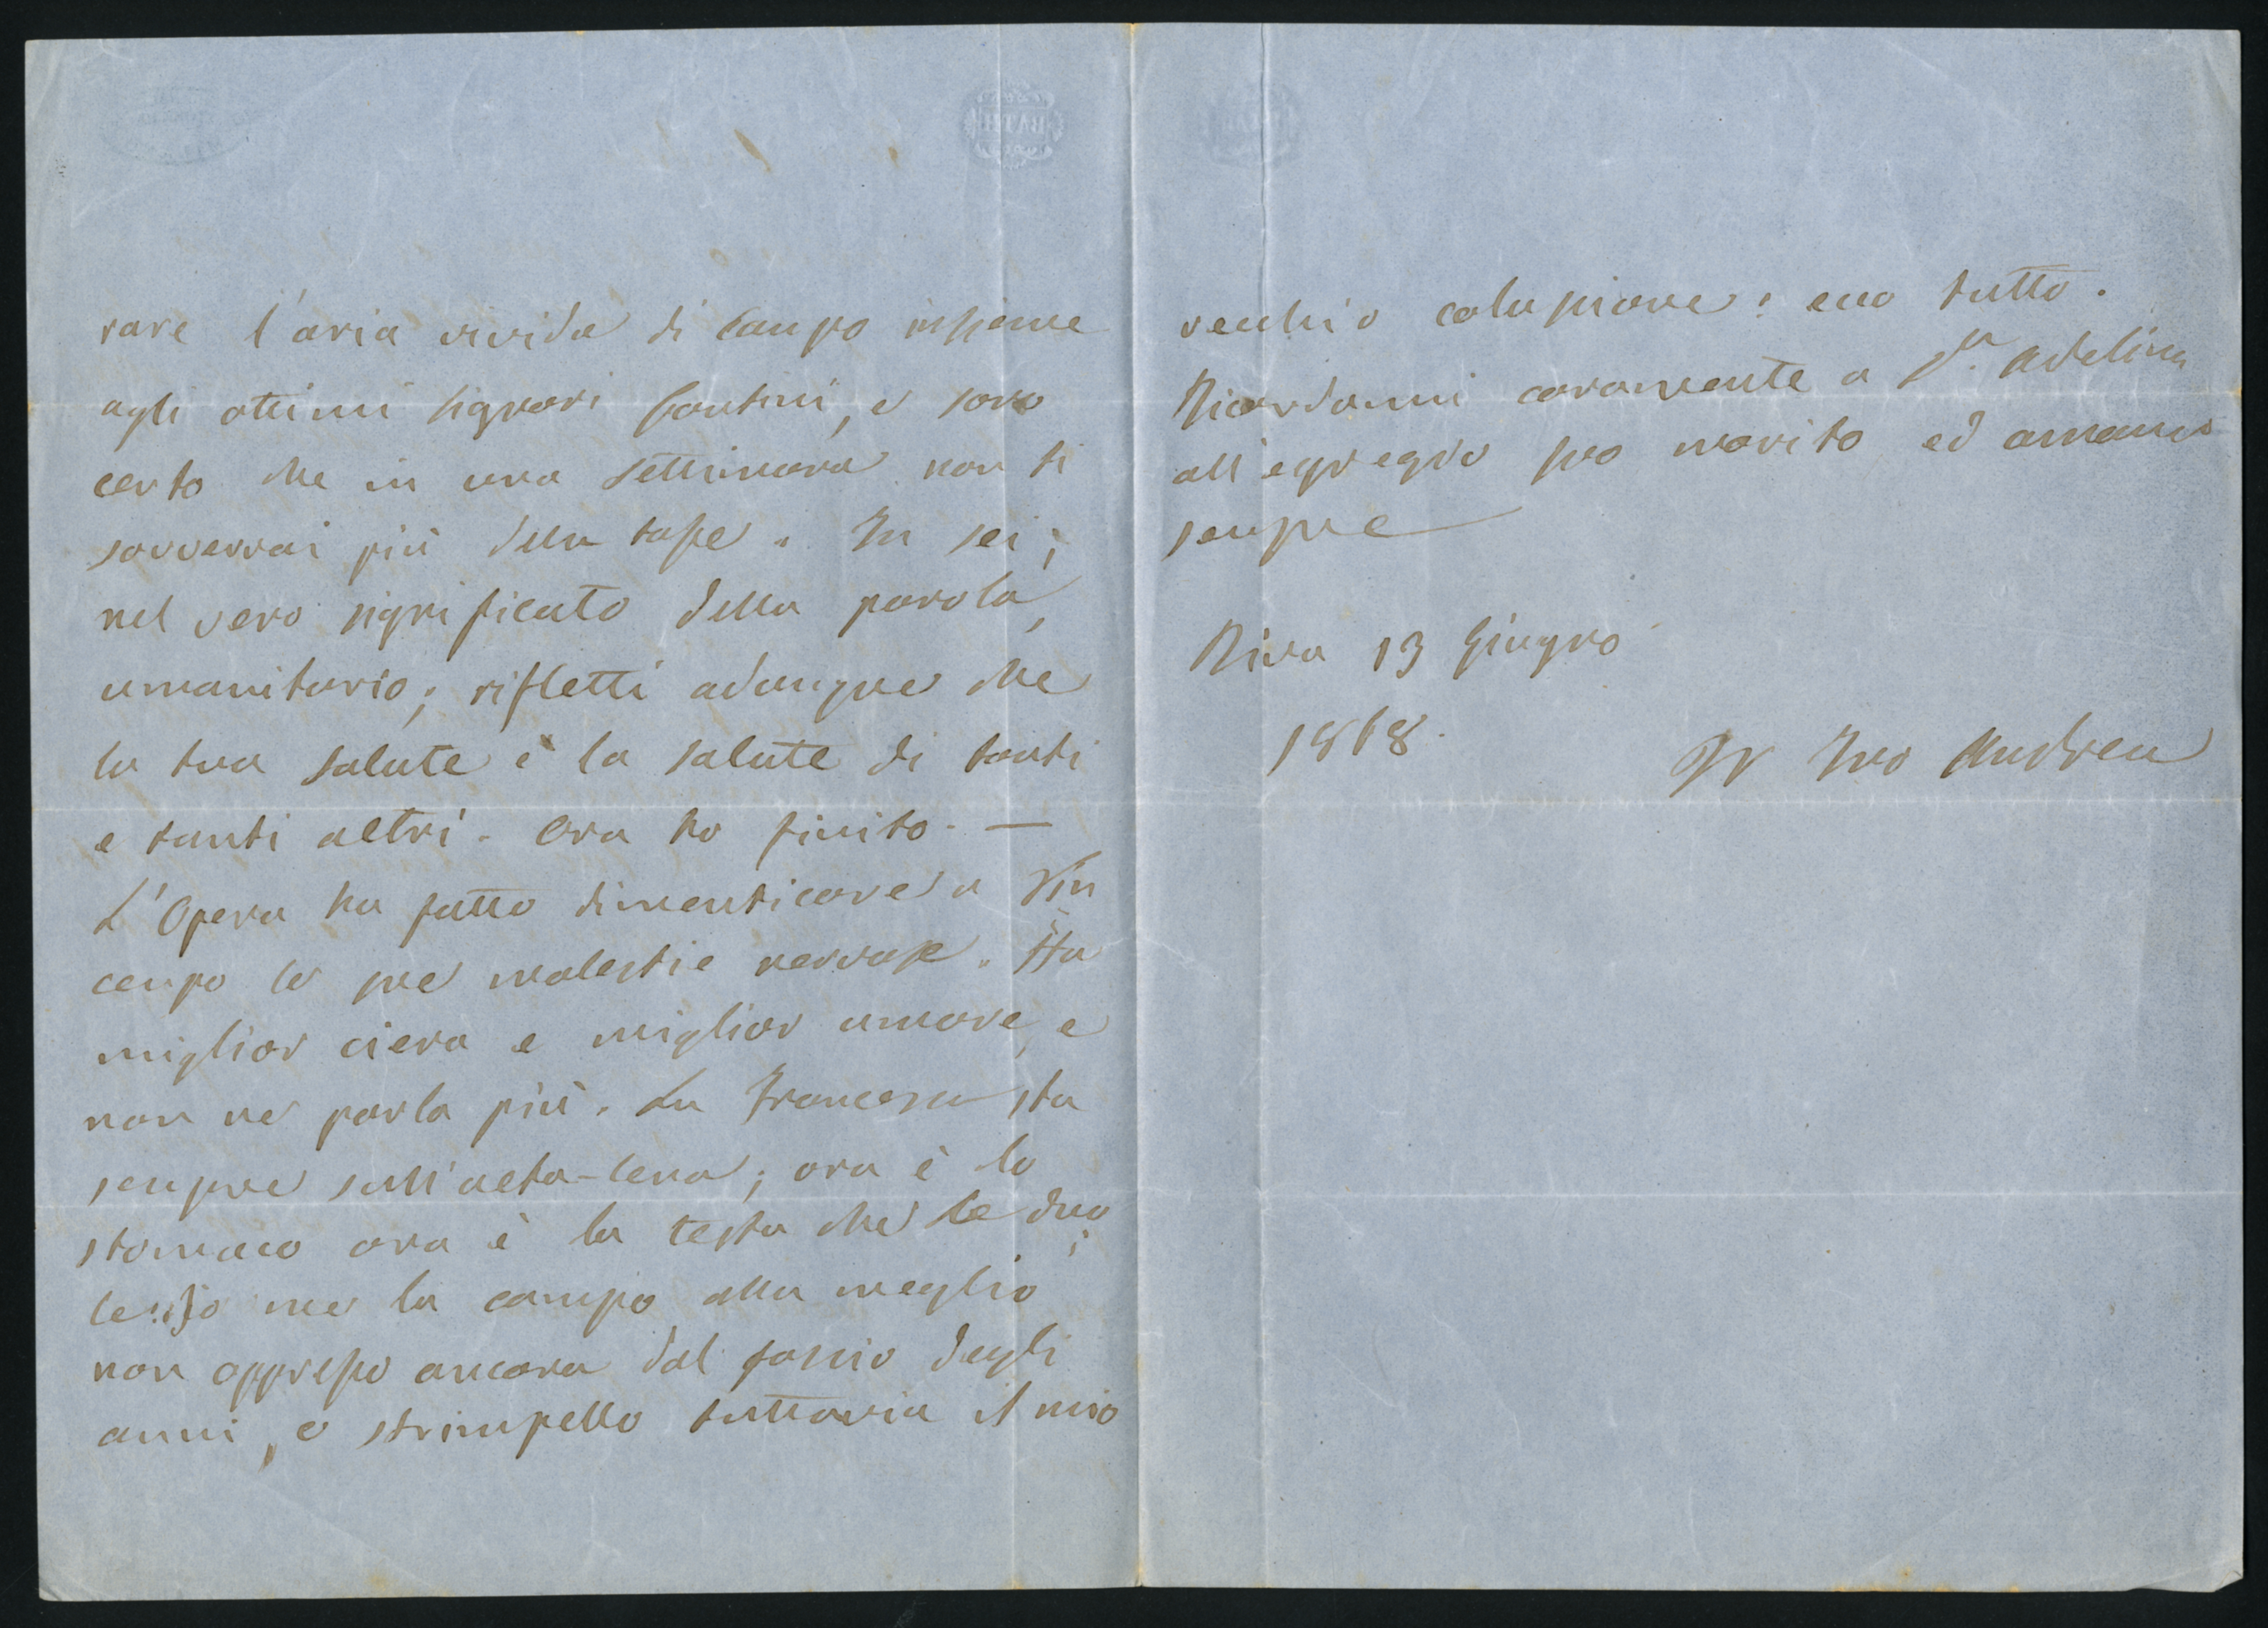 rare l'aria vivida di Campo insieme
agli ottimi signori Contini, e sono
certo che in una settimana non ti
sovverrai più della tosse. Tu sei,
nel vero significato della parola,
umanitario; rifletti adunque che
la tua salute è la salute di tanti
e tanti altri. Ora ho finito. —
L'Opera ha fatto dimenticare a Vin
cenzo le sue molestie nervose. Ha
miglior ciera e miglior umore, e
non ne parla più. La Francesca sta
sempre sull'alta-lena; ora è lo
stomaco ora è la testa che le duo
le. Io me la campo alla meglio
non oppresso ancora dal fascio degli
anni, e strimpello tuttavia il mio
vecchio colascione: ecco tutto.
Ricordami caramente a S.ra Adelina
all'egregio suo marito ed amami
sempre
Riva 13 Giugno
1868.
Il Tuo Andrea
BATH